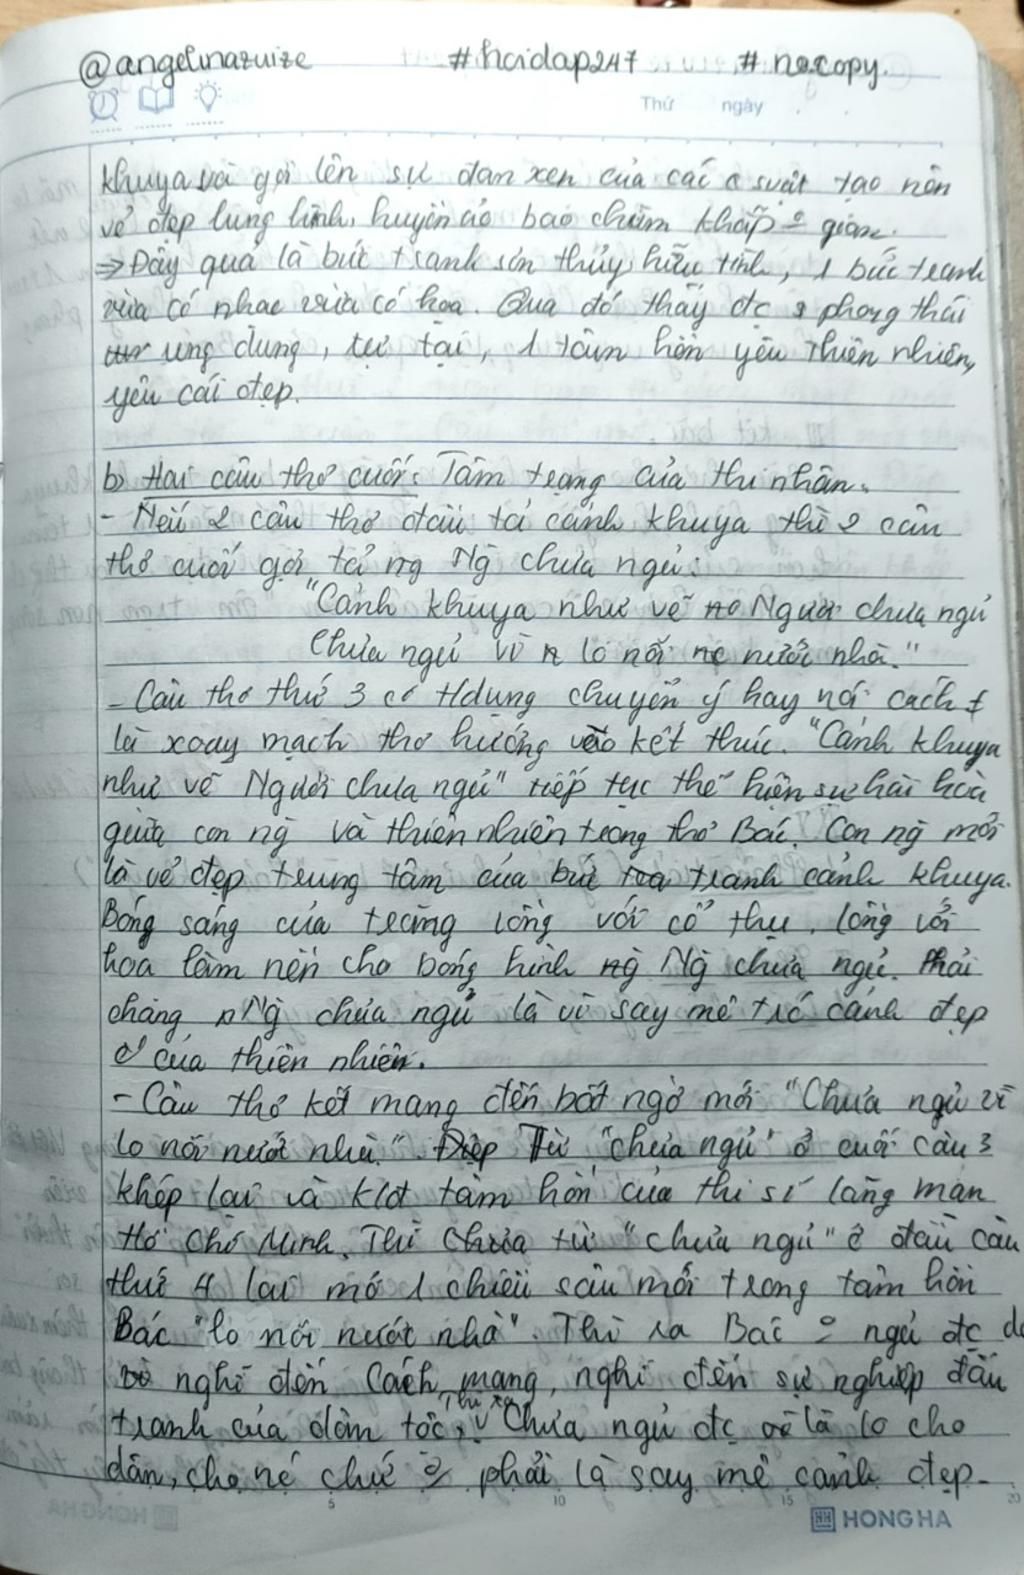 @angelinazuize #hoidap247 #nocopy.
Thứ ngày
khuya và gợi lên sự đan xen của các sự vật tạo nên
vẻ đẹp lung linh, huyền ảo bao chùm khắp gian.
⇒ Đây quả là bức tranh sơn thủy hữu tình, 1 bức tranh
vừa có nhạc vừa có họa. Qua đó thấy đc phong thái
ung dung, tự tại, 1 tâm hồn yêu thiên nhiên,
yêu cái đẹp.
b) Hai câu thơ cuối: Tâm trạng của thi nhân.
- Nếu 2 câu thơ đầu tả cảnh khuya thì 2 câu
thơ cuối gợi tả ng Ng chưa ngủ:
"Cảnh khuya như vẽ Người chưa ngủ
Chưa ngủ vì lo nỗi nước nhà."
- Câu thơ thứ 3 có tdụng chuyển ý hay nói cách ≠
là xoay mạch thơ hướng vào kết thúc. "Cảnh khuya
như vẽ Người chưa ngủ" tiếp tục thể hiện sự hài hòa
giữa con ng và thiên nhiên trong thơ Bác. Con ng mới
là vẻ đẹp trung tâm của bức tranh cảnh khuya.
Bóng sáng của trăng lồng với cổ thụ, lồng với
hoa làm nền cho bóng hình Ng chưa ngủ. Phải
chăng Ng chưa ngủ là vì say mê trc cảnh đẹp
của thiên nhiên.
- Câu thơ kết mang đến bất ngờ mới "Chưa ngủ vì
lo nỗi nước nhà". Từ "chưa ngủ" ở cuối câu 3
khép lại và tâm hồn của thi sĩ lãng mạn
Hồ Chí Minh. Thì từ "chưa ngủ" ở đầu câu
thứ 4 lại mở 1 chiều sâu mới trong tâm hồn
Bác "lo nỗi nước nhà". Thì ra Bác ngủ đc do
nghĩ đến Cách mạng, nghĩ đến sự nghiệp đấu
tranh của dân tộc, Chưa ngủ đc là lo cho
dân, cho nc chứ phải là say mê cảnh đẹp.
5 10 15 20
HONG HA